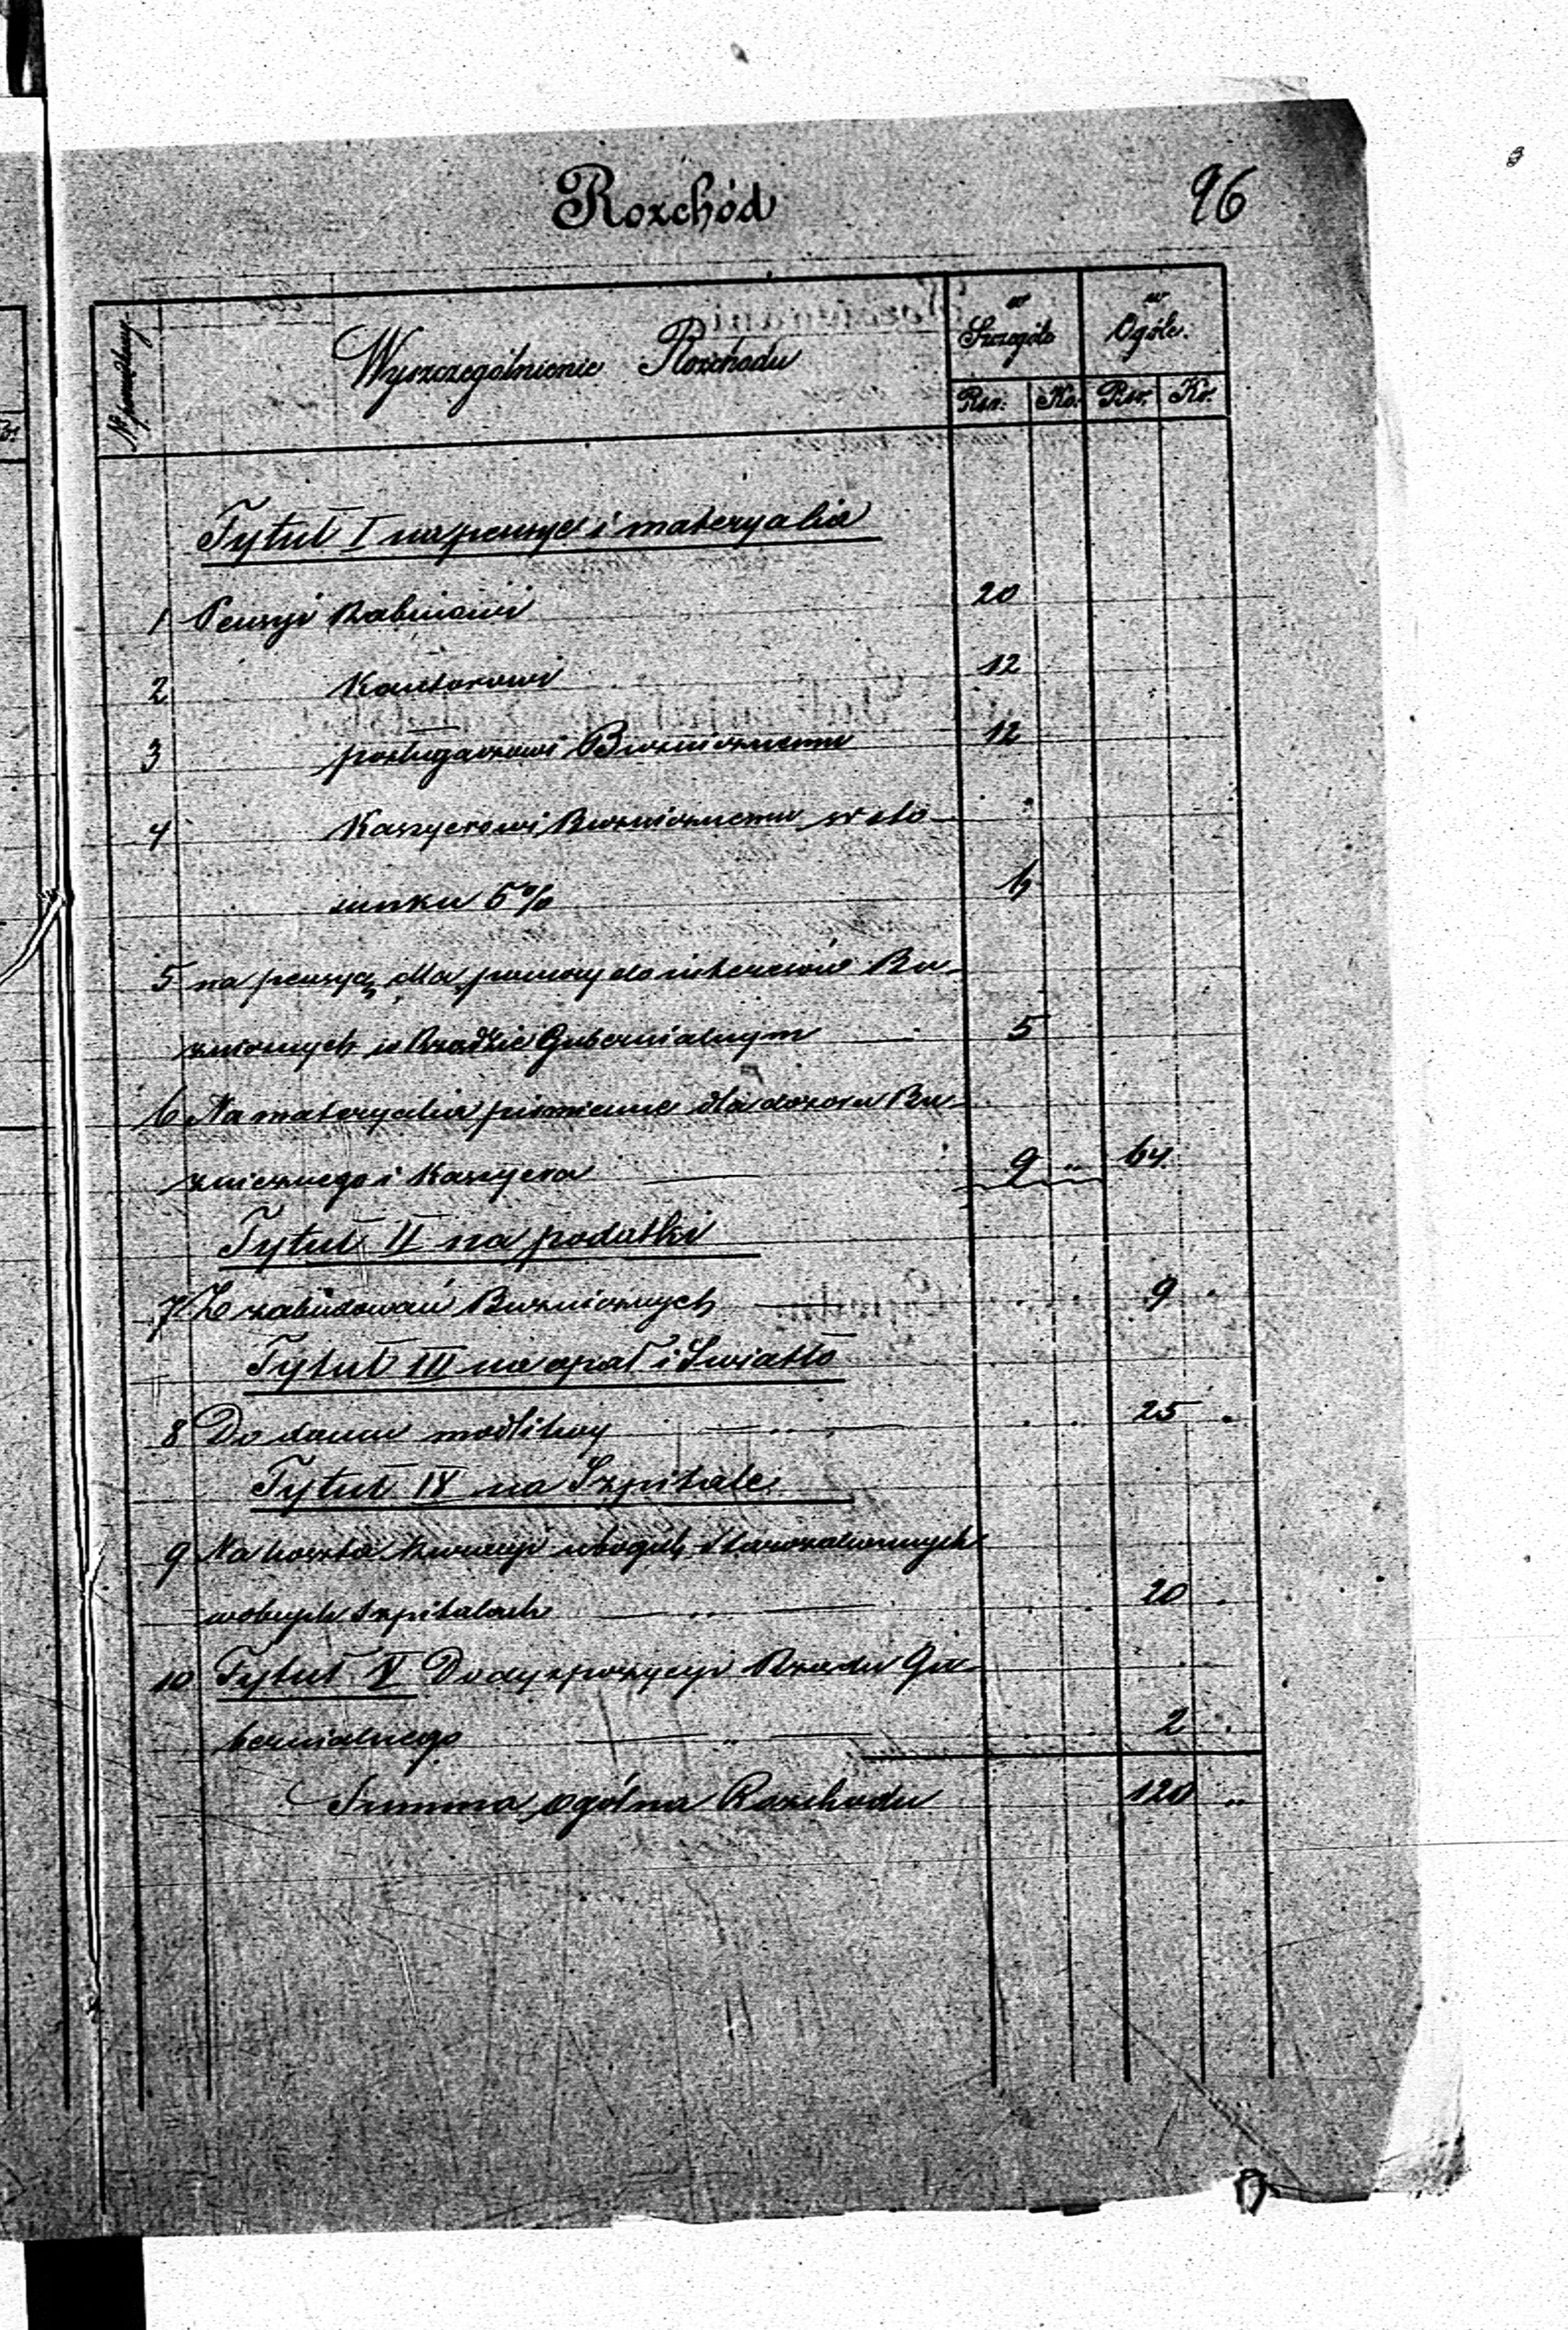 Rozchód
96
w Szczególe
w Ogóle.
Wyszczególnienie Rozchodu
Rsr. Ko. Rsr. Ko.
Tytuł I na pensye i materyalia
1 Pensyi Rabinowi 20
2 Kantorowi 12
3 posługaczowi Bużnicznemu 12
4 Kasyerowi Bużnicznemu w sto-
sunku 5% 6
5 na pensyą dla pomocy do interesów Bu-
znicznych w Rządzie Gubernialnym 5
6 Na materyalia piśmienne dla dozoru Bu-
znicznego i Kasyera 9 " 64
Tytuł II na podatki
7 Z zabudowań Bużnicznych 9
Tytuł III na opał i Swiatło
8 Do domu modlitwy 25
Tytuł IV na Szpitale
9 Na koszta kuracyi ubogich starozakonnych
w obcych szpitalach 20
10 Tytuł V Do dyspozycyi Rządu Gu-
bernialnego 2
Summa ogólna Rozchodu 120 "